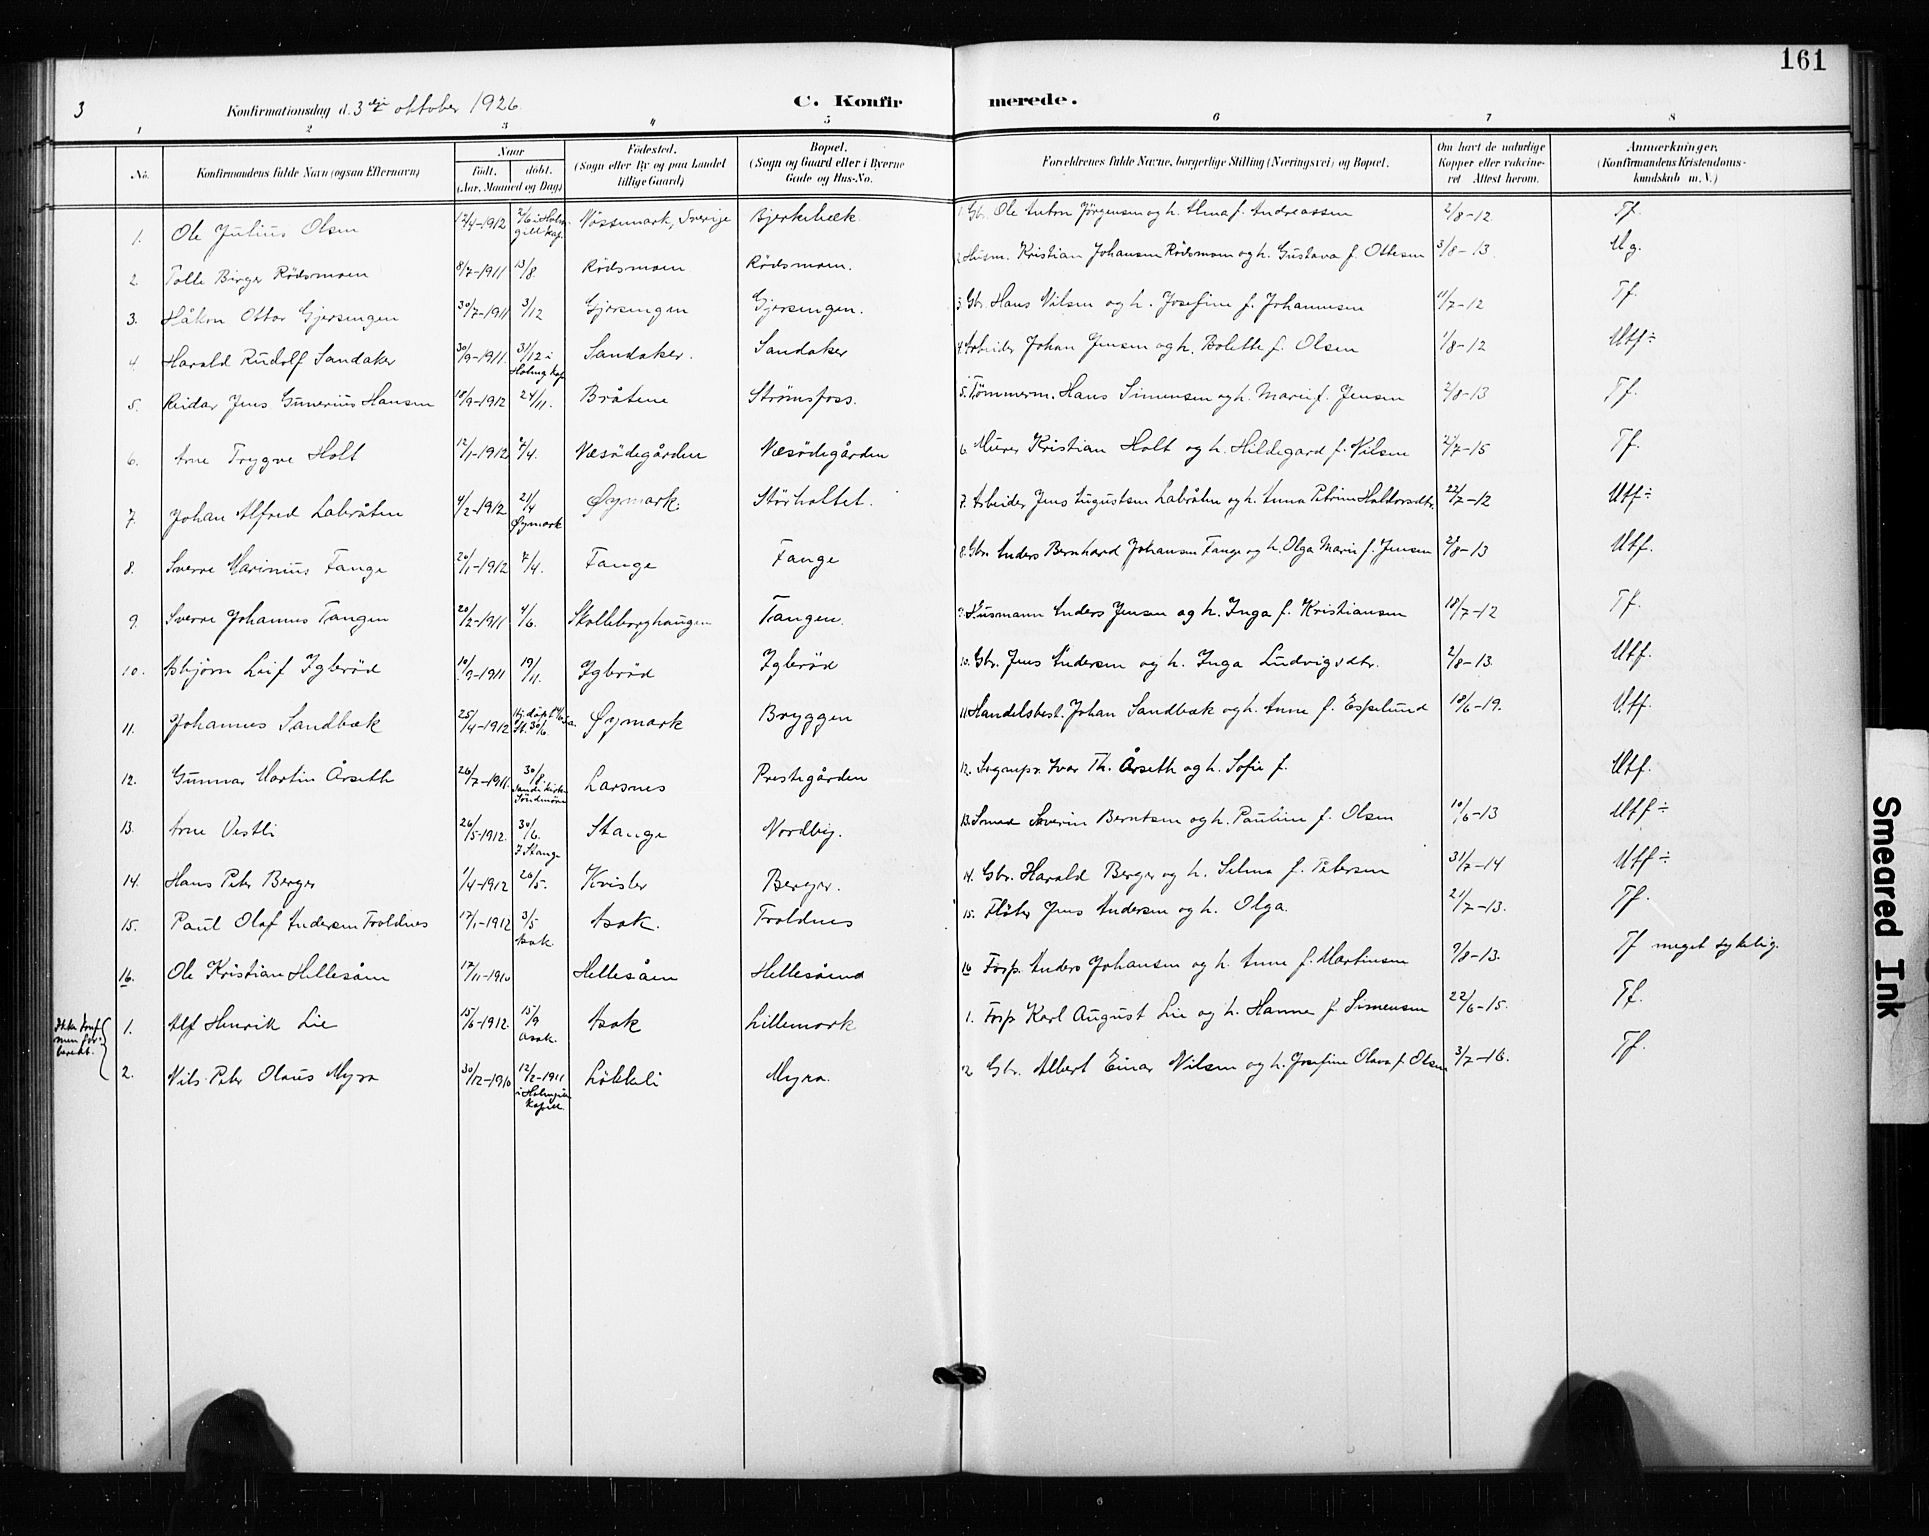 161
3
Konfirmationsdag d. 3dje oktober 1926.
C. Konfirmerede.
1 2 3 4 5 6 7 8
No.
Konfirmandens fulde Navn (ogsaa Efternavn)
Naar
født. døbt.
(Aar, Maaned og Dag)
Fødested.
(Sogn eller By og paa Landet
tillige Gaard)
Bopæl.
(Sogn og Gaard eller i Byerne
Gade og Hus-No.
Forældrenes fulde Navne, borgerlige Stilling (Næringsvei) og Bopæl.
Om havt de naturlige
Kopper eller vaksine-
ret Attest herom.
Anmærkninger,
(Konfirmandens Kristendoms-
kundskab m. V.)
1. Ole Julius Olsen 12/4-1912 2/6 i Holm-gill kap. Nössemark, Sverige Bjerkebæk 1. Gbr. Ole Anton Jörgensen og h. Alma f. Andreassen 2/8-12 Tf.
2. Tolle Birger Rödsmoen 8/7-1911 13/8 Rödsmoen Rödsmoen. 2. Husm. Kristian Johansen Rödsmoen og h. Gustava f. Ottesen 3/8-13. Mg.
3. Håkon Ottar Gjersengen 30/7-1911 3/12 Gjersengen Gjersengen. 3. Gbr. Hans Nilsen og h. Josefine f. Johannesen 11/7-12 Tf.
4. Harald Rudolf Sandaker 30/9-1911. 31/12 i Holmg kap. Sandaker. Sandaker 4. Arbeider Johan Jensen og h. Bolette f. Olsen 1/8-12 Utf ÷
5. Reidar Jens Gunerius Hansen 18/9-1912 24/11. Bråtene Strömsfoss. 5. Tömmerm. Hans Simensen og h. Marie f. Jensen 2/8-13 Tf.
6. Arne Trygve Holt 12/1-1912 7/4. Næsödegården Næsödegården 6. Murer Kristian Holt og h. Hildegard f. Nilsen 2/7-15 Tf.
7. Johan Alfred Labråten 4/2-1912 21/4 Øymark Øymark. Störholtet. 7. Arbeider Jens Augustsen Labråten og h. Anna Petrine Haldorsdtr. 22/7-12 Utf ÷
8. Sverre Marinius Fange 20/1-1912 7/4. Fange Fange 8. Gbr. Anders Bernhard Johansen Fange og h. Olga Marie f. Jensen 2/8-13 Utf.
9. Sverre Johannes Tangen 20/2-1911 4/6. Skolleborghaugen Tangen. 9. Husmann Anders Jensen og h. Inga f. Kristiansen 18/7-12 Tf.
10. Asbjörn Leif Igleröd 10/9-1911 19/11. Igleröd Igleröd 10. Gbr. Jens Andersen og h. Inga Ludvigsdtr. 2/8-13. Utf.
11. Johannes Sandbæk 25/4-1912 Hj.döpt St. 30/6. Øymark Bryggen 11. Handelsbest. Johan Sandbæk og h. Anne f. Espelund 18/6-19. Utf.
12. Gunnar Martin Årseth 26/7-1911. 30/8. Söndmöre Larsnes Prestegården 12. Sognepr. Ivar Th. Årseth og h. Sofie f. Utf.
13. Arne Vestli 26/5-1912. 30/6. I Stange Stange Nordby. 13. Smed Severin Berntsen og h. Pauline f. Olsen 10/6-13 Utf ÷
14. Hans Peter Berger 1/4-1912 26/5. Kvisler Berger. 14. Gbr. Harald Berger og h. Selma f. Petersen 31/7-14 Utf ÷
15. Paul Olaf Andersen Troldnes 17/1-1912 3/5 Asak. Asak. Troldnes 15. Flöter Jens Andersen og h. Olga. 21/7-13. Tf.
16. Ole Kristian Hellesåen 17/11-1910 Hellesåen Hellesåend 16 Forp. Anders Johansen og h. Anne f. Martinsen 9/8-13. Tf meget sykelig.
Ikke konf. men for-beredt.
1. Alf Henrik Lie 15/6-1912. 15/9 Asak. Asak Lillemork 1. Forp. Karl August Lie og h. Hanna f. Simensen 22/6-15. Tf.
2. Nils Peter Olaus Myra 30/12-1910 12/2-1911 i Holmgiln kapell. Lökkeli Myra. 2 Gbr. Albert Einar Nilsen og h. Josefine Olava f. Olsen 3/7-16. Tf.
Smeared Ink